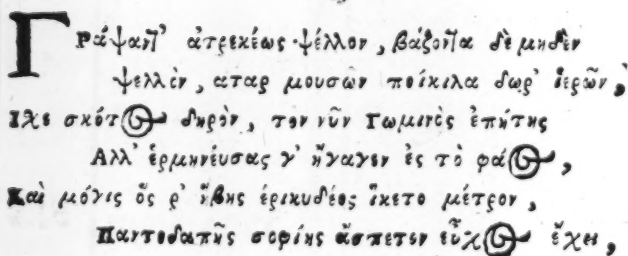 Γράψαντ' ἀτρεκέως Ψέλλον, βάζοντα δὲ μηδὲν
ψελλὸν, αταρ μουσῶν ποίκιλα δωρ' ἱερῶν,
Ιχε σκότος δηρὸν, τον νῦν Γωμινὸς ἐπήτης
Αλλ' ἑρμηνέυσας γ' ἤγαγεν ἐς τὸ φάος,
Καὶ μόγις ὅς ῥ' ἥβης ἐρικυδέος ἵκετο μέτρον,
Παντοδαπῆς σοφίης ἄσπετον εὖχος ἔχει,